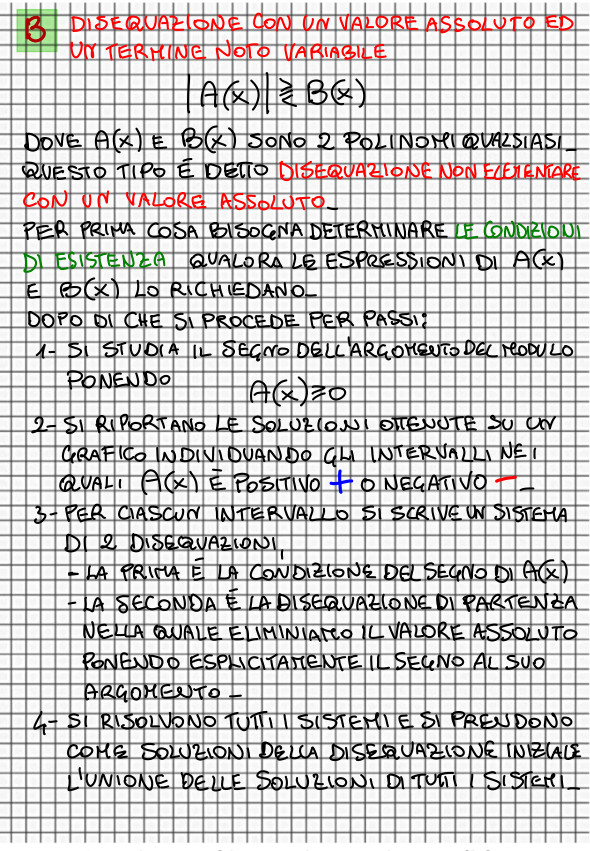 B DISEQUAZIONE CON UN VALORE ASSOLUTO ED
UN TERMINE NOTO VARIABILE
|A(x)| ≷ B(x)
DOVE A(x) E B(x) SONO 2 POLINOMI QUALSIASI_
QUESTO TIPO È DETTO DISEQUAZIONE NON ELEMENTARE
CON UN VALORE ASSOLUTO_
PER PRIMA COSA BISOGNA DETERMINARE LE CONDIZIONI
DI ESISTENZA QUALORA LE ESPRESSIONI DI A(x)
E B(x) LO RICHIEDANO_
DOPO DI CHE SI PROCEDE PER PASSI:
1- SI STUDIA IL SEGNO DELL'ARGOMENTO DEL MODULO
PONENDO
A(x)≥0
2- SI RIPORTANO LE SOLUZIONI OTTENUTE SU UN
GRAFICO INDIVIDUANDO GLI INTERVALLI NEI
QUALI A(x) È POSITIVO + O NEGATIVO - _
3- PER CIASCUN INTERVALLO SI SCRIVE UN SISTEMA
DI 2 DISEQUAZIONI,
- LA PRIMA È LA CONDIZIONE DEL SEGNO DI A(x)
- LA SECONDA È LA DISEQUAZIONE DI PARTENZA
NELLA QUALE ELIMINIAMO IL VALORE ASSOLUTO
PONENDO ESPLICITAMENTE IL SEGNO AL SUO
ARGOMENTO _
4- SI RISOLVONO TUTTI I SISTEMI E SI PRENDONO
COME SOLUZIONI DELLA DISEQUAZIONE INIZIALE
L'UNIONE DELLE SOLUZIONI DI TUTTI I SISTEMI_